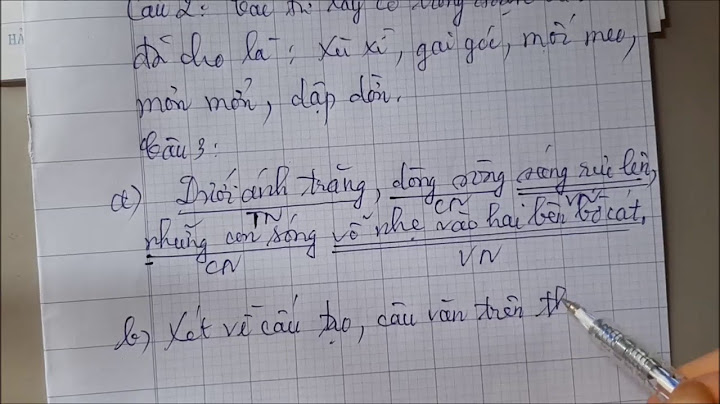 Câu 2: Các từ láy có trong
đã cho là: xù xì, gai góc, mốc meo,
mòn mỏn, dập dồn.
Câu 3:
a) Dưới ánh trăng, dòng sông sáng rực lên,
TN CN VN
những con sóng vỗ nhẹ vào hai bên bờ cát.
CN VN
b) Xét về cấu tạo, câu văn trên th